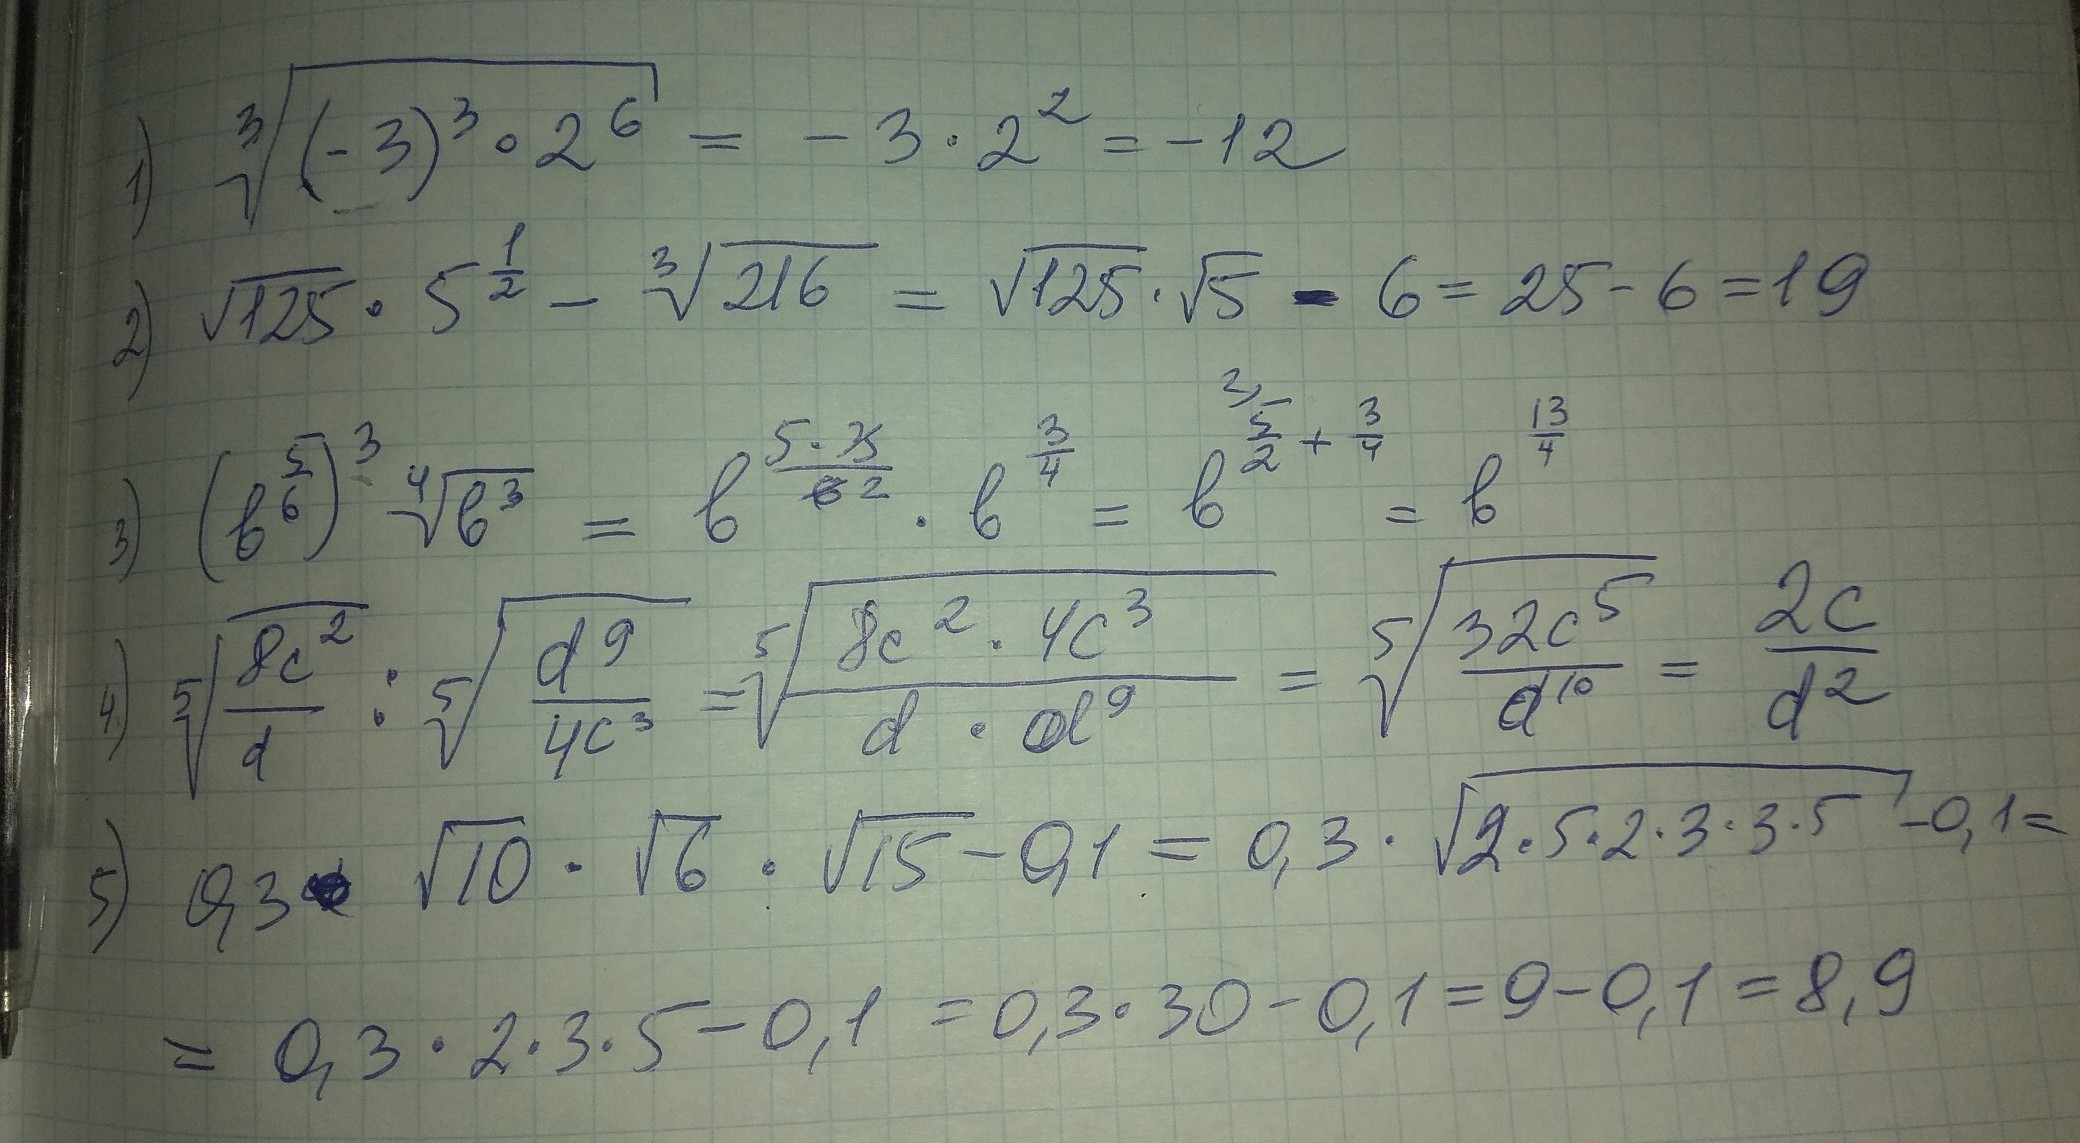 1) ∛((-3)³ · 2⁶) = -3 · 2² = -12
2) √125 · 5^(1/2) - ∛216 = √125 · √5 - 6 = 25 - 6 = 19
3) (b^(5/6))³ ∜(b³) = b^((5·3)/(6 2)) · b^(3/4) = b^(2, 5/2 + 3/4) = b^(13/4)
4) ⁵√(8c²/d) : ⁵√(d⁹/4c³) = ⁵√((8c² · 4c³)/(d · d⁹)) = ⁵√(32c⁵/d¹⁰) = 2c/d²
5) 0,3 √10 · √6 · √15 - 0,1 = 0,3 · √(2·5·2·3·3·5) - 0,1 =
= 0,3 · 2 · 3 · 5 - 0,1 = 0,3 · 30 - 0,1 = 9 - 0,1 = 8,9